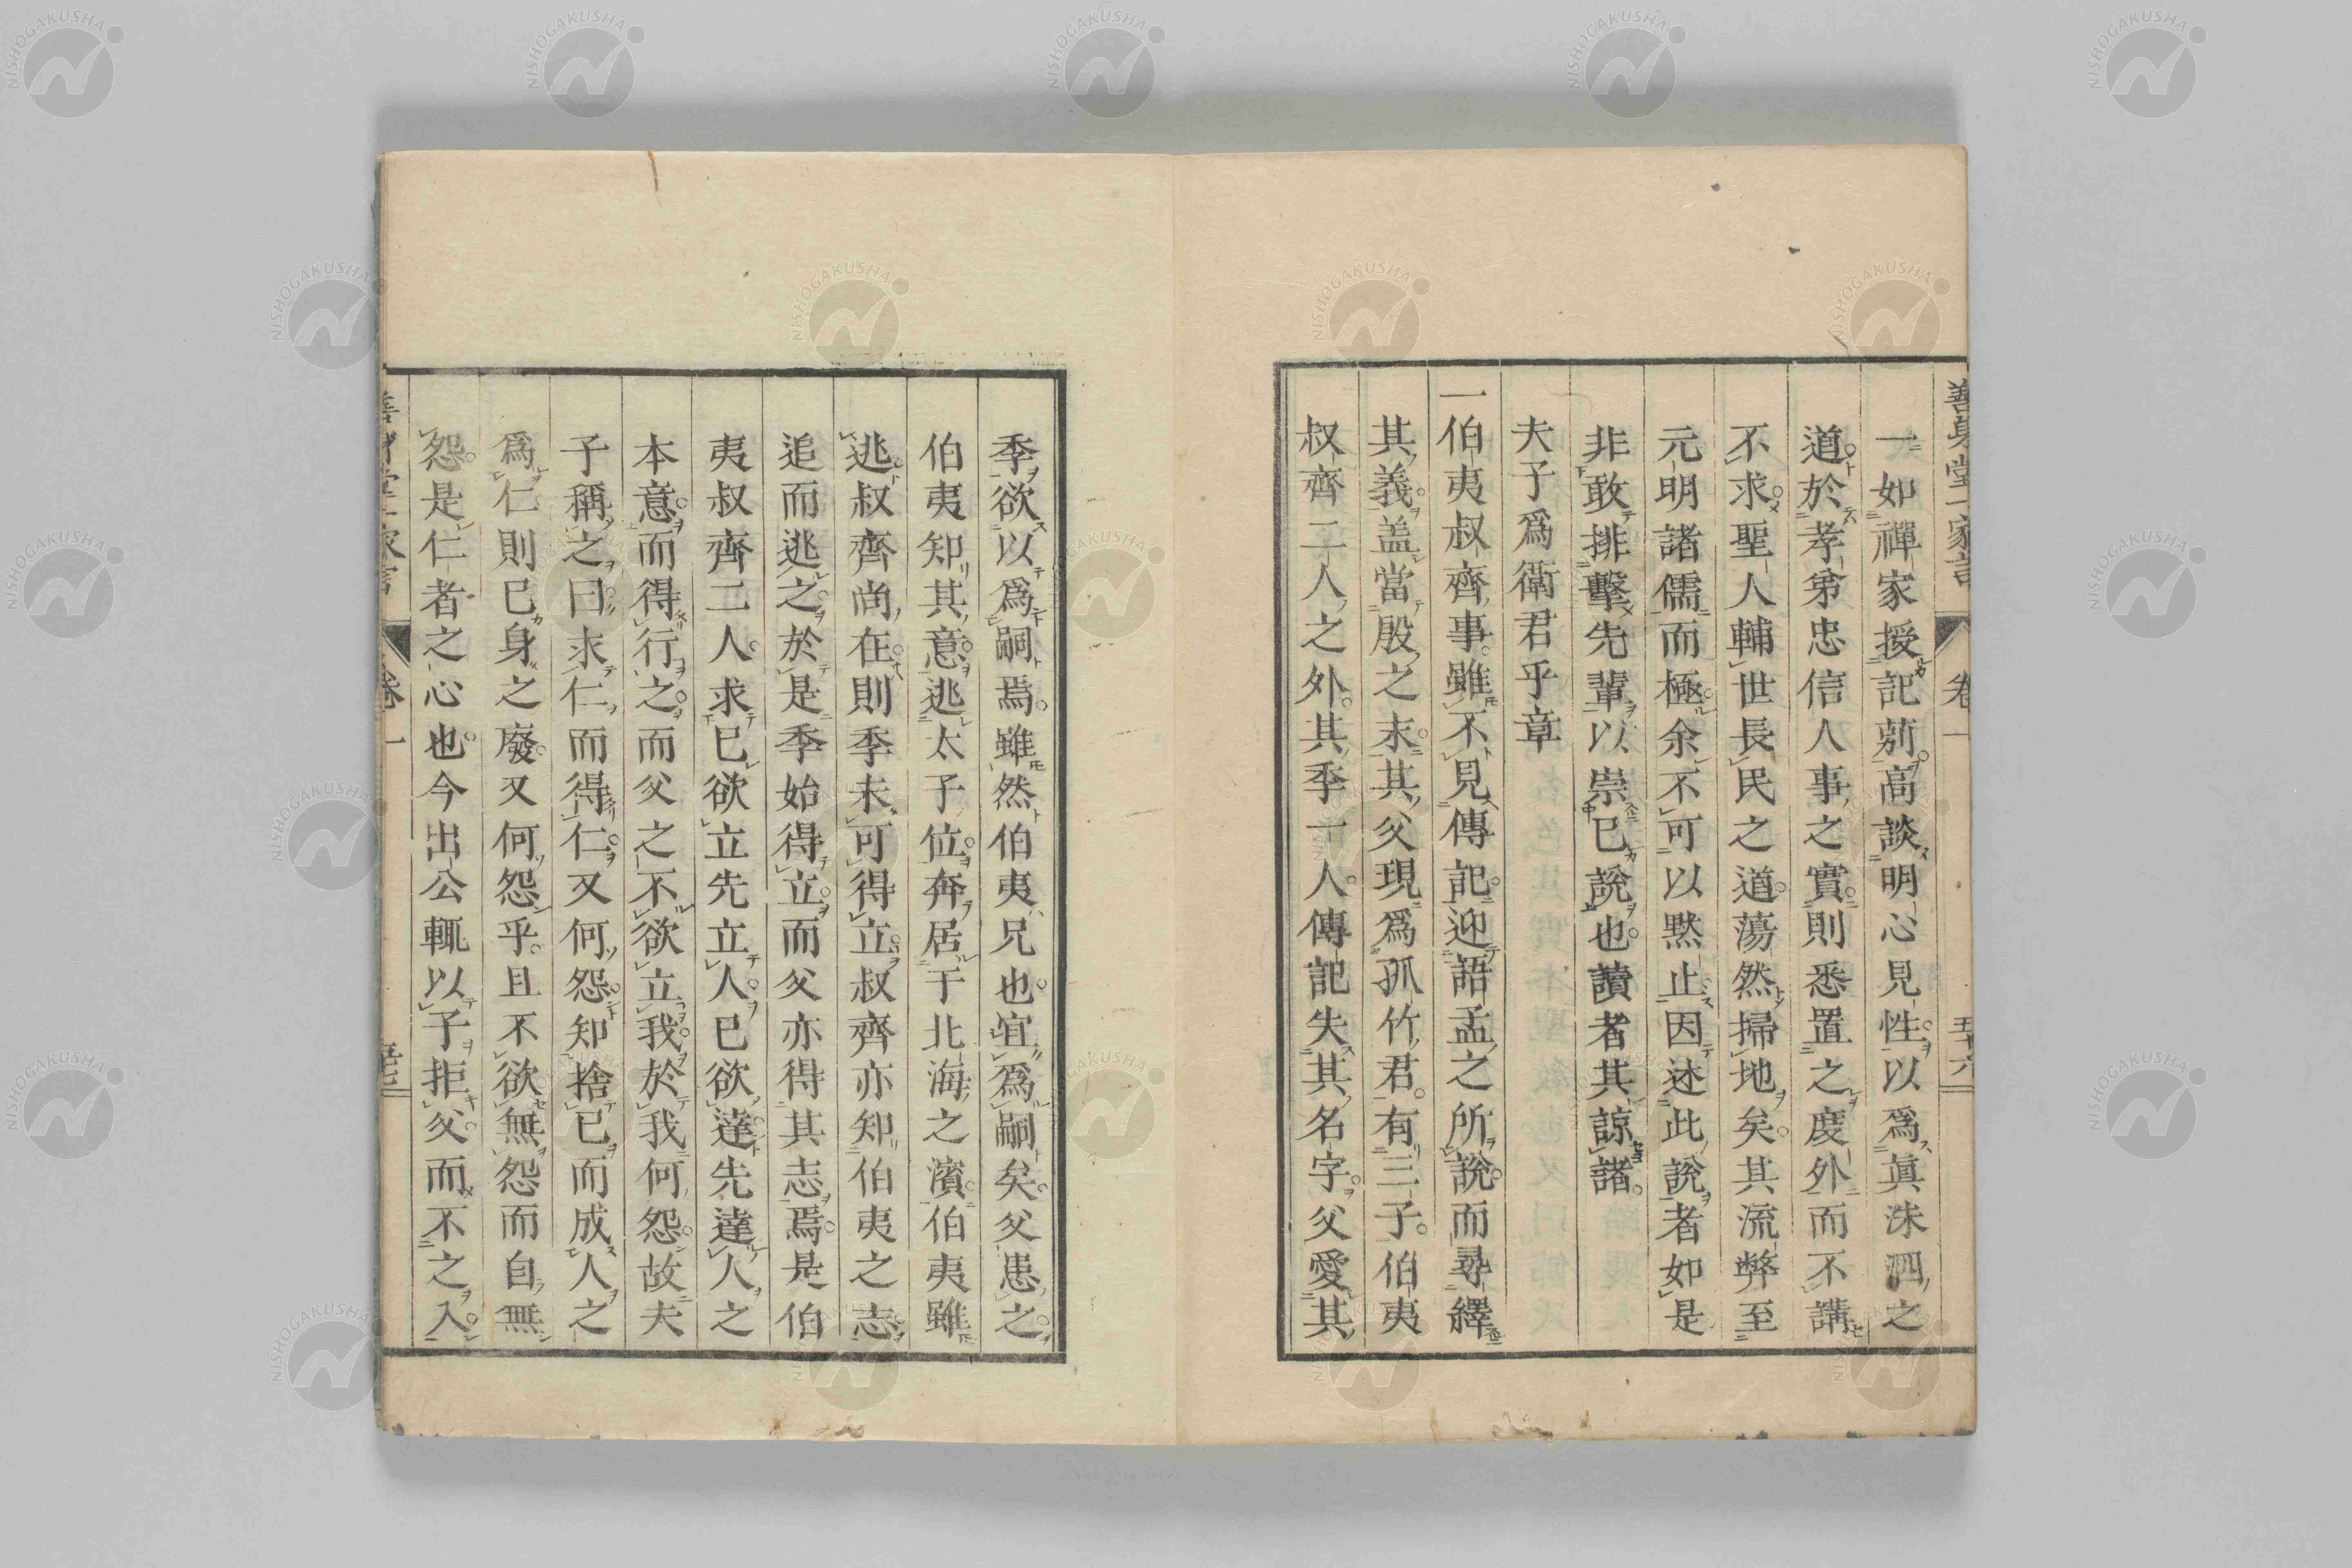 一如禪家授記莂高談明心見性以爲眞洙泗之
道於孝弟忠信人事之實則悉置之度外而不講
不求聖人輔世長民之道蕩然掃地矣其流弊至
元明諸儒而極余不可以黙止因述此說者如是
非敢排擊先輩以崇已說也讀者其諒諸
夫子爲衞君乎章
一伯夷叔齊事雖不見傳記迎語孟之所說而尋繹
其義盖當殷之末其父現爲孤竹君有三子伯夷
叔齊二人之外其季一人傳記失其名字父愛其
季欲以爲嗣焉雖然伯夷兄也宜爲嗣矣父患之
伯夷知其意逃太子位奔居于北海之濱伯夷雖
逃叔齊尚在則季未可得立叔齊亦知伯夷之志
追而逃之於是季始得立而父亦得其志焉是伯
夷叔齊二人求已欲立先立人已欲達先達人之
本意而得行之而父之不欲立我於我何怨故夫
子稱之曰求仁而得仁又何怨知捨已而成人之
爲仁則已身之廢又何怨乎且不欲無怨而自無
怨是仁者之心也今出公輒以子拒父而不之入
善身堂一家言 卷一 五十六
卷一
NISHOGAKUSHA